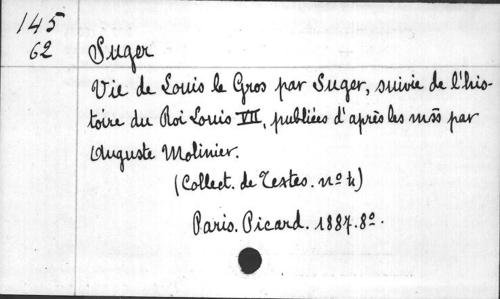 145
62
Suger
Vie de Louis le Gros par Suger, suivie de l'his-
toire du Roi Louis VII, publiées d'après les mss par
Auguste Molinier.
(Collect. de Textes. no 4)
Paris. Picard. 1887. 8o.